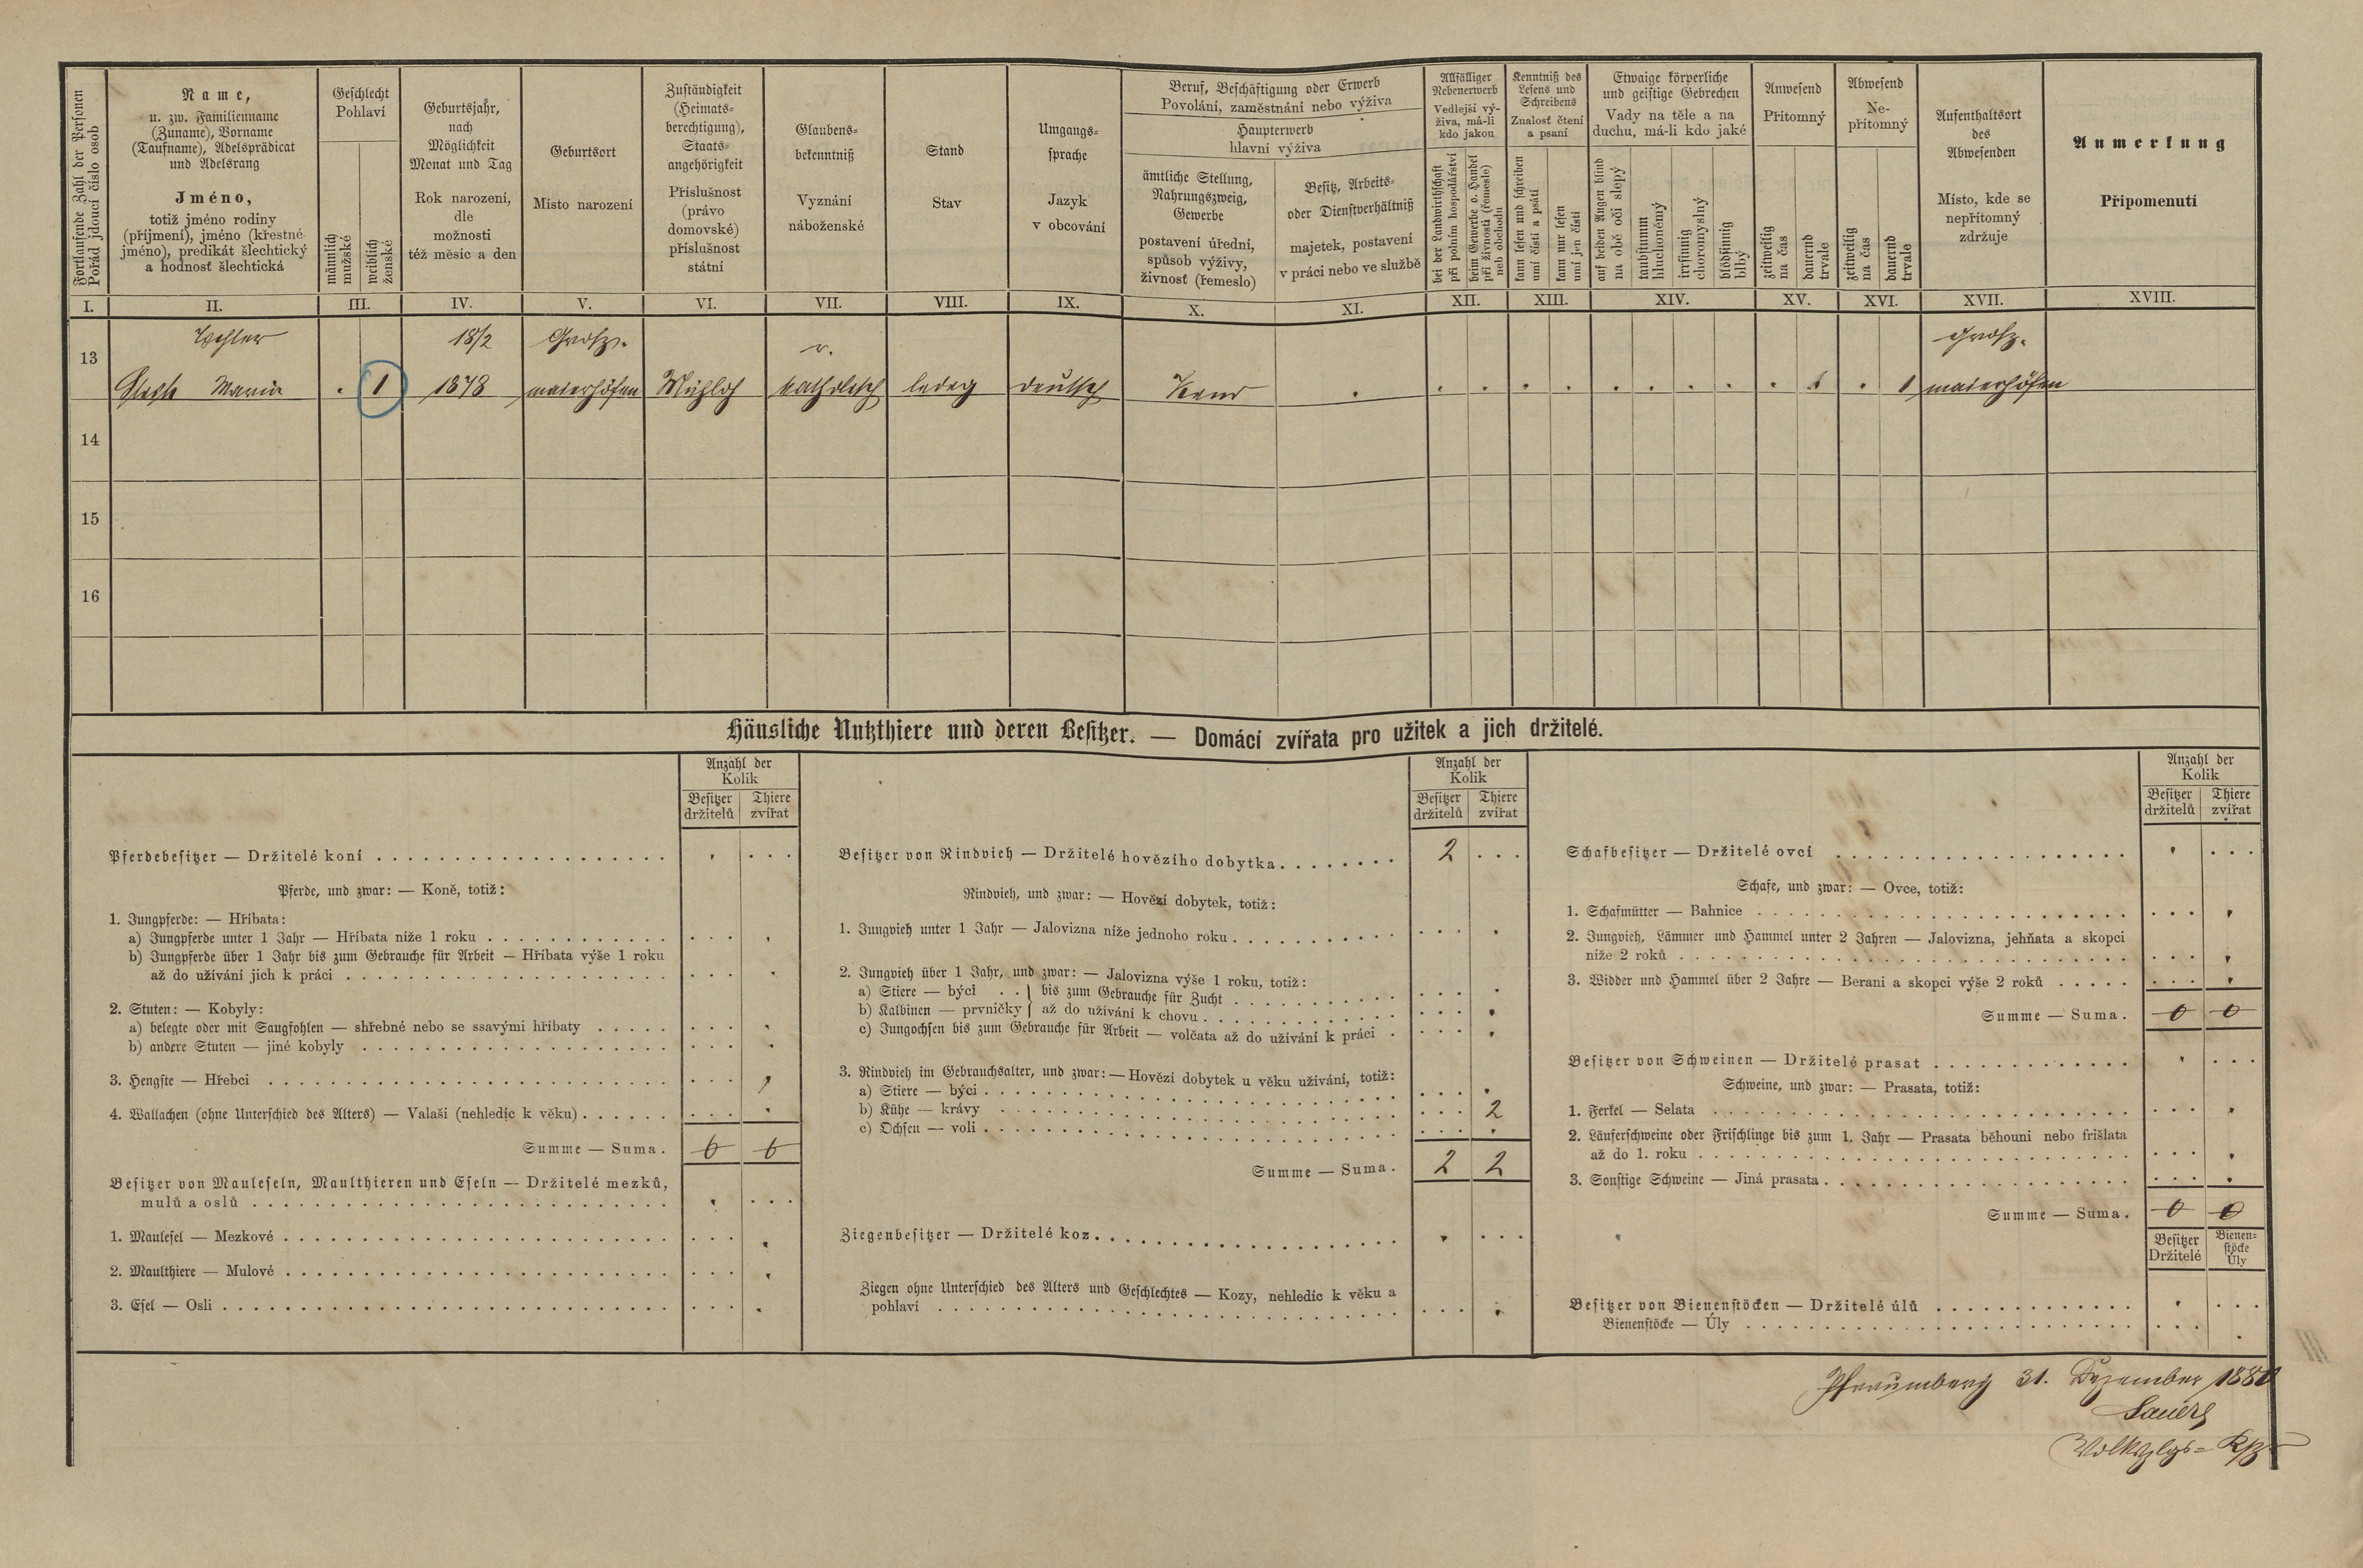 Fortlaufende Zahl der Personen
Pořád jdoucí číslo osob
Name,
u. zw. Familienname
(Zuname), Vorname
(Taufname), Adelsprädicat
und Adelsrang
Jméno,
totiž jméno rodiny
(příjmení), jméno (křestné
jméno), predikát šlechtický
a hodnosť šlechtická
Geschlecht
Pohlaví
männlich
mužské
weiblich
ženské
Geburtsjahr,
nach
Möglichkeit
Monat und Tag
Rok narození,
dle
možnosti
též měsíc a den
Geburtsort
Místo narození
Zuständigkeit
(Heimats-
berechtigung),
Staats-
angehörigkeit
Příslušnost
(právo
domovské)
příslušnost
státní
Glaubens-
bekenntniß
Vyznání
náboženské
Stand
Stav
Umgangs-
sprache
Jazyk
v obcování
Beruf, Beschäftigung oder Erwerb
Povolání, zaměstnání nebo výživa
Haupterwerb
hlavní výživa
ämtliche Stellung,
Nahrungszweig,
Gewerbe
postavení úřední,
spůsob výživy,
živnosť (řemeslo)
Besitz, Arbeits-
oder Dienstverhältniß
majetek, postavení
v práci nebo ve službě
Allfälliger
Nebenerwerb
Vedlejší vý-
živa, má-li
kdo jakou
bei der Landwirthschaft
při polním hospodářství
beim Gewerbe o. Handel
při živnosti (řemesle)
neb obchodu
Kenntniß des
Lesens und
Schreibens
Znalosť čtení
a psaní
kann lesen und schreiben
umí čísti a psáti
kann nur lesen
umí jen čísti
Etwaige körperliche
und geistige Gebrechen
Vady na těle a na
duchu, má-li kdo jaké
auf beiden Augen blind
na obě oči slepý
taubstumm
hluchoněmý
irrsinnig
choromyslný
blödsinnig
blbý
Anwesend
Přítomný
zeitweilig
na čas
dauernd
trvale
Abwesend
Ne-
přítomný
zeitweilig
na čas
dauernd
trvale
Aufenthaltsort
des
Abwesenden
Místo, kde se
nepřítomný
zdržuje
Anmerkung
Připomenutí
I. II. III. IV. V. VI. VII. VIII. IX. X. XI. XII. XIII. XIV. XV. XVI. XVII. XVIII.
18/2 Großs. r. Großs.
13
Maria . 1 1878 maierhöfen Mühloh katholisch ledig deutsch . . . . . . . . . . . 1 maierhöfen
14
15
16
Häusliche Nutzthiere und deren Besitzer. — Domácí zvířata pro užitek a jich držitelé.
Anzahl der
Kolik
Besitzer
držitelů
Thiere
zvířat
Pferdebesitzer — Držitelé koní
Pferde, und zwar: — Koně, totiž:
1. Jungpferde: — Hříbata:
a) Jungpferde unter 1 Jahr — Hříbata níže 1 roku
b) Jungpferde über 1 Jahr bis zum Gebrauche für Arbeit — Hříbata výše 1 roku
až do užívání jich k práci
2. Stuten: — Kobyly:
a) belegte oder mit Saugfohlen — shřebné nebo se ssavými hříbaty
b) andere Stuten — jiné kobyly
3. Hengste — Hřebci
4. Wallachen (ohne Unterschied des Alters) — Valaši (nehledíc k věku)
Summe — Suma. 0 0
Besitzer von Mauleseln, Maulthieren und Eseln — Držitelé mezků,
mulů a oslů
1. Maulesel — Mezkové
2. Maulthiere — Mulové
3. Esel — Osli
Anzahl der
Kolik
Besitzer
držitelů
Thiere
zvířat
Besitzer von Rindvieh — Držitelé hovězího dobytka 2
Rindvieh, und zwar: — Hovězí dobytek, totiž:
1. Jungvieh unter 1 Jahr — Jalovizna níže jednoho roku
2. Jungvieh über 1 Jahr, und zwar: — Jalovizna výše 1 roku, totiž:
a) Stiere — býci . . } bis zum Gebrauche für Zucht
b) Kalbinen — prvničky } až do užívání k chovu
c) Jungochsen bis zum Gebrauche für Arbeit — volčata až do užívání k práci
3. Rindvieh im Gebrauchsalter, und zwar: — Hovězí dobytek u věku užívání, totiž:
a) Stiere — býci
b) Kühe — krávy 2
c) Ochsen — voli
Summe — Suma. 2 2
Ziegenbesitzer — Držitelé koz
Ziegen ohne Unterschied des Alters und Geschlechtes — Kozy, nehledíc k věku a
pohlaví
Anzahl der
Kolik
Besitzer
držitelů
Thiere
zvířat
Schafbesitzer — Držitelé ovcí
Schafe, und zwar: — Ovce, totiž:
1. Schafmütter — Bahnice
2. Jungvieh, Lämmer und Hammel unter 2 Jahren — Jalovizna, jehňata a skopci
níže 2 roků
3. Widder und Hammel über 2 Jahre — Berani a skopci výše 2 roků
Summe — Suma. 0 0
Besitzer von Schweinen — Držitelé prasat
Schweine, und zwar: — Prasata, totiž:
1. Ferkel — Selata
2. Läuferschweine oder Frischlinge bis zum 1. Jahr — Prasata běhouni nebo frišlata
až do 1. roku
3. Sonstige Schweine — Jiná prasata
Summe — Suma. 0 0
Besitzer
Držitelé
Bienen-
stöcke
Úly
Besitzer von Bienenstöcken — Držitelé úlů
Bienenstöcke — Úly
Pfraumberg 31. Dezember 1880